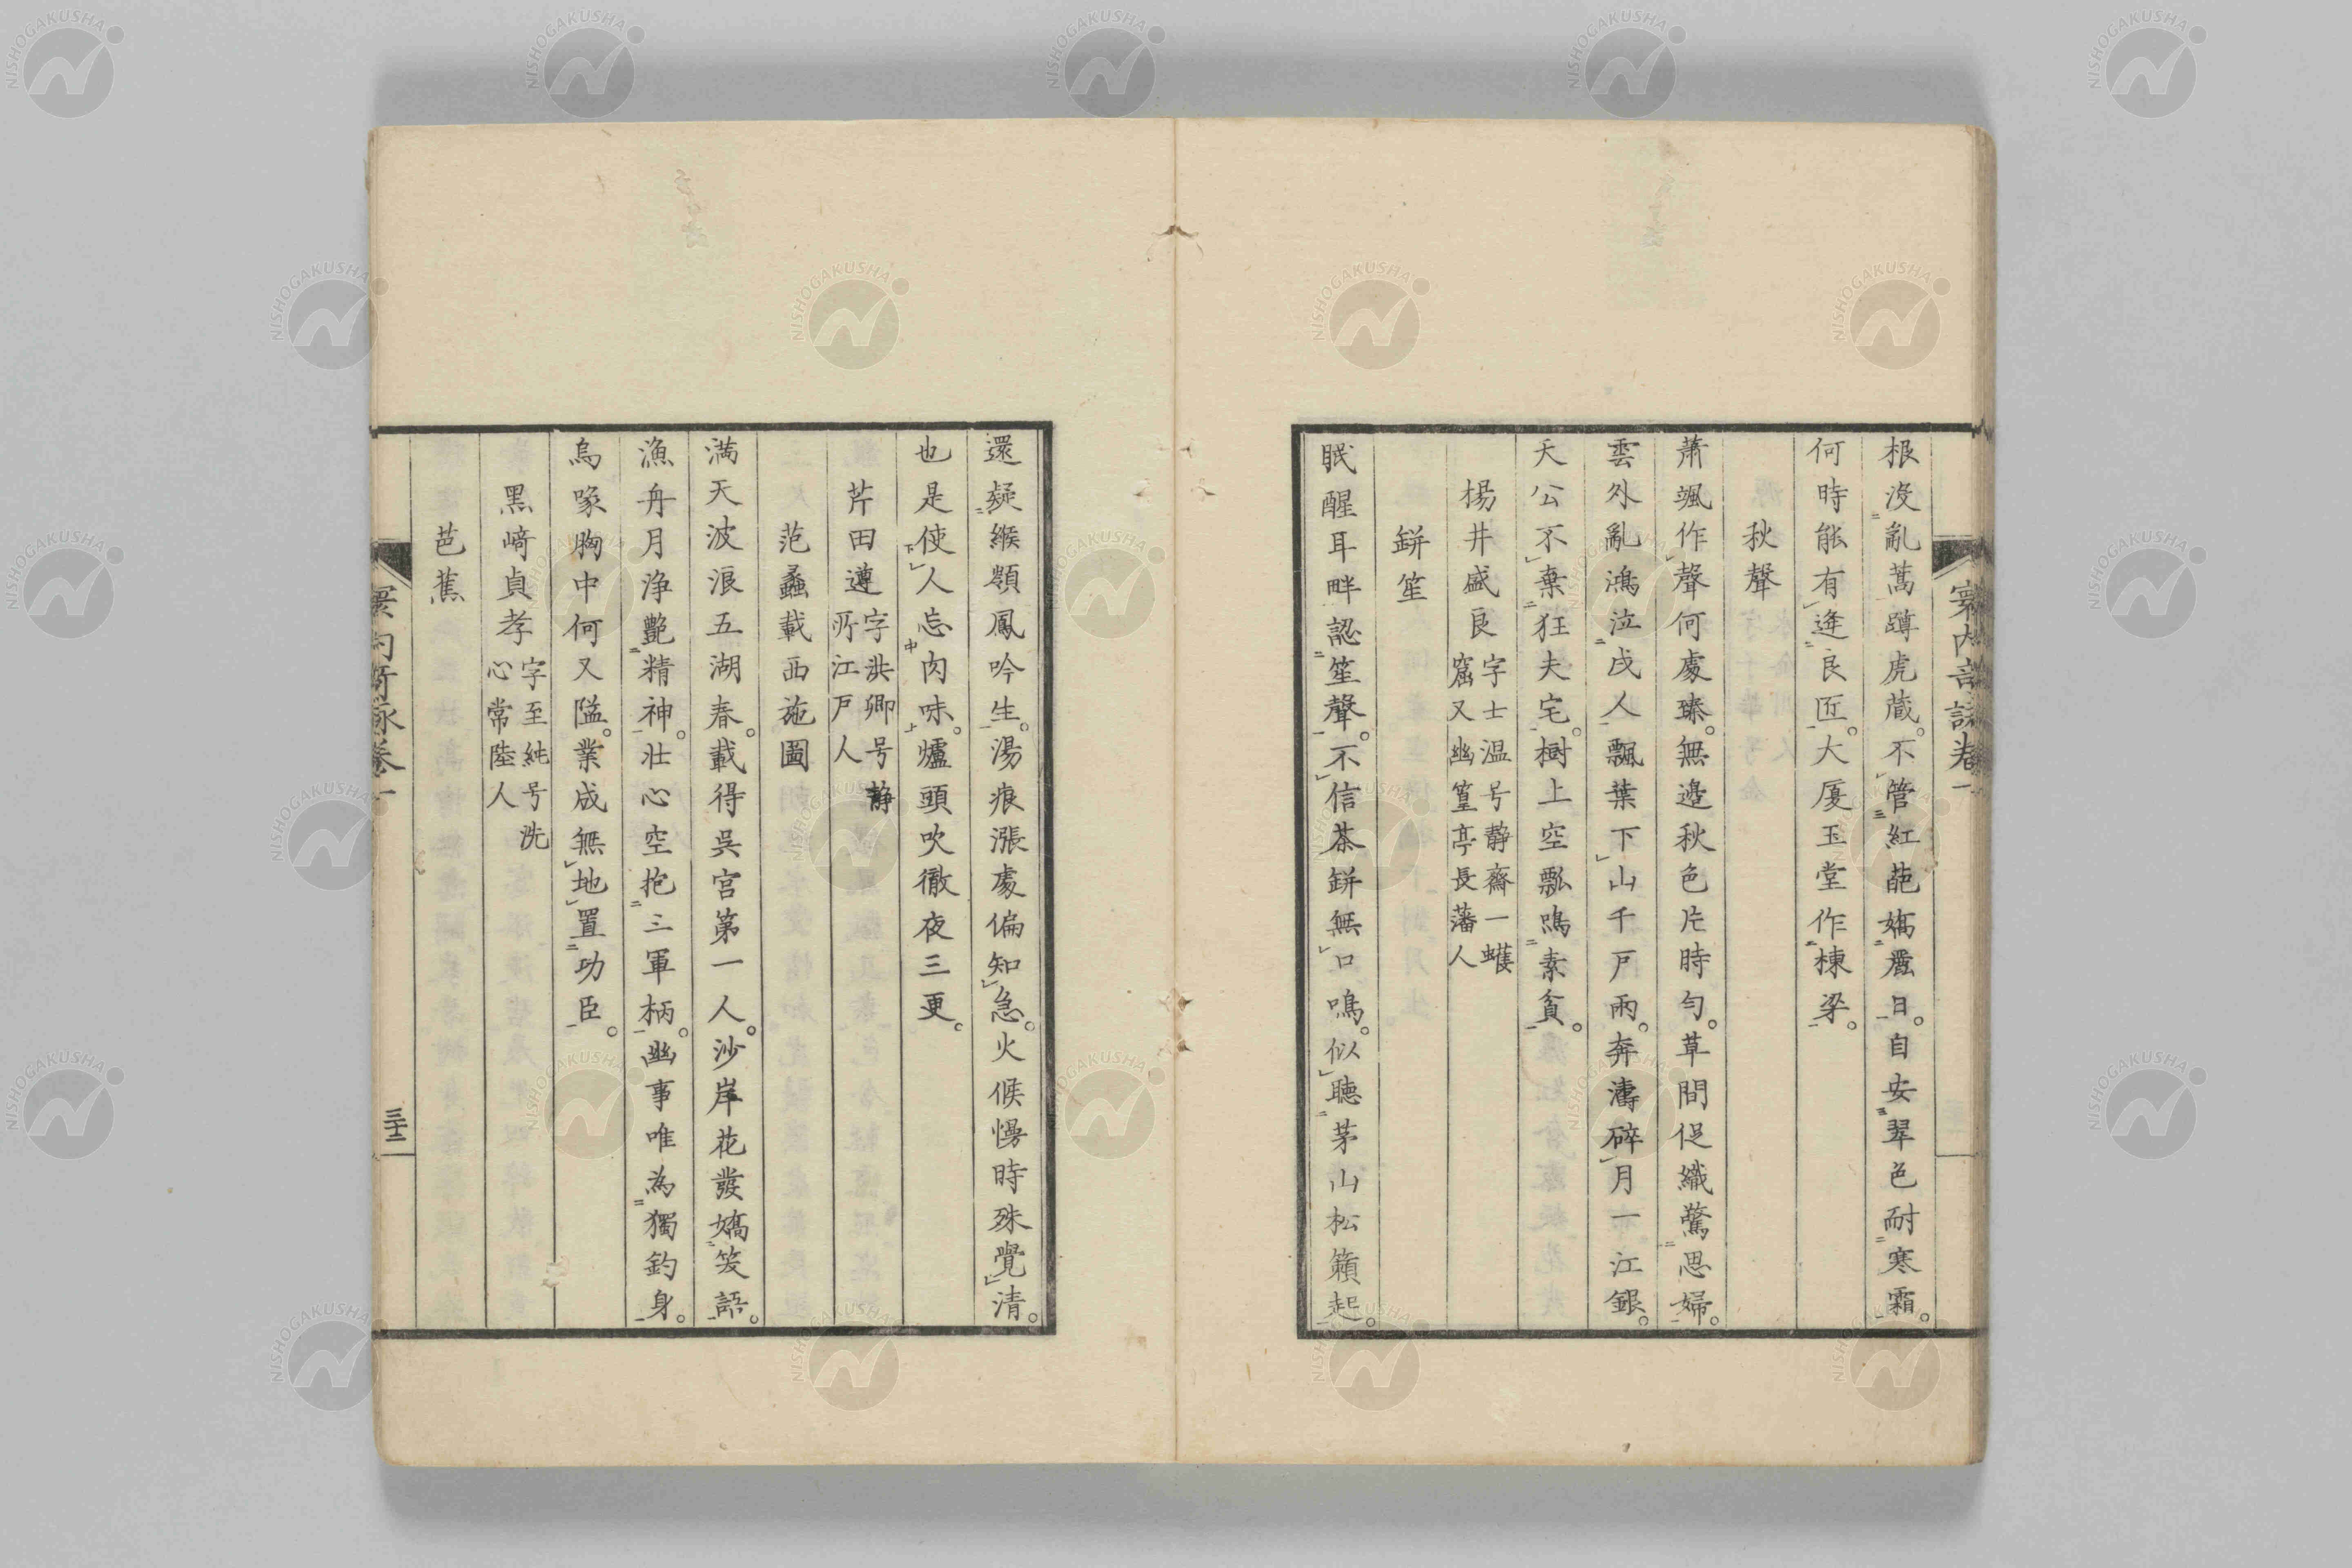 根没亂蒿蹲虎蔵。不管紅葩嬌暖日。自安翠色耐寒霜。
何時能有逢良匠。大厦玉堂作棟梁。
秋聲
蕭颯作聲何處臻。無邊秋色片時勻。草間促織驚思婦。
雲外亂鴻泣戍人。飄葉下山千戸雨。奔濤碎月一江銀。
天公不棄狂夫宅。樹上空瓢鳴素貧。
楊井盛良
字士温号静齋一蠖
窟又幽篁亭長藩人
鉼笙
眠醒耳畔認笙聲。不信茶鉼無口鳴。似聴茅山松籟起。
還疑緱嶺鳳吟生。湯痕漲處偏知急。火候慢時殊覺清。
也是使人忘肉味。爐頭吹徹夜三更。
芹田遵
字洪卿号静
所江戸人
范蠡載西施圖
満天波浪五湖春。載得呉宮第一人。沙岸花發嬌笑語。
漁舟月浄艶精神。壮心空抱三軍柄。幽事唯為獨釣身。
烏喙胸中何又隘。業成無地置功臣。
黒﨑貞孝
字至純号洗
心常陸人
芭蕉
三十二
NISHOGAKUSHA